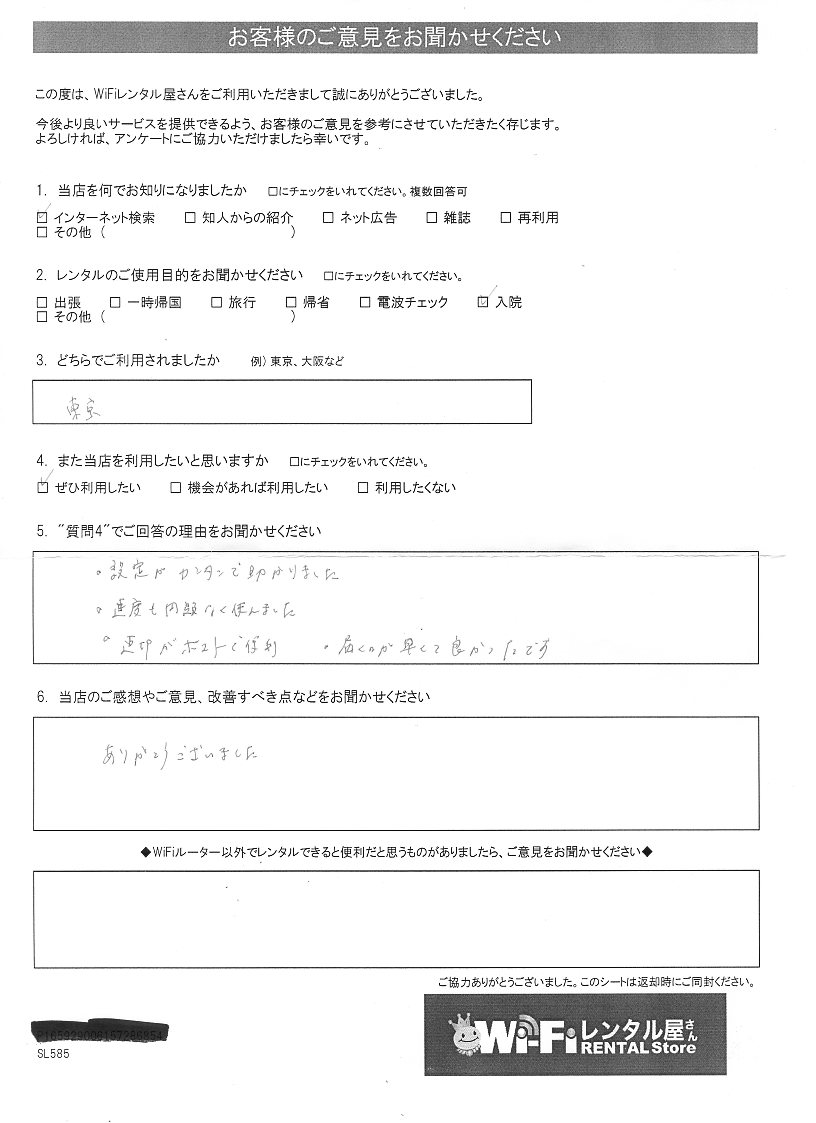 お客様のご意見をお聞かせください
この度は、WiFiレンタル屋さんをご利用いただきまして誠にありがとうございました。
今後より良いサービスを提供できるよう、お客様のご意見を参考にさせていただきたく存じます。
よろしければ、アンケートにご協力いただけましたら幸いです。
1. 当店を何でお知りになりましたか □にチェックをいれてください。複数回答可
☑ インターネット検索 □ 知人からの紹介 □ ネット広告 □ 雑誌 □ 再利用
□ その他 ( )
2. レンタルのご使用目的をお聞かせください □にチェックをいれてください。
□ 出張 □ 一時帰国 □ 旅行 □ 帰省 □ 電波チェック ☑ 入院
□ その他 ( )
3. どちらでご利用されましたか 例) 東京、大阪など
東京
4. また当店を利用したいと思いますか □にチェックをいれてください。
☑ ぜひ利用したい □ 機会があれば利用したい □ 利用したくない
5. "質問4"でご回答の理由をお聞かせください
・設定がカンタンで助かりました
・速度も問題なく使えました
・返却がポストで便利 ・届くのが早くて良かったです
6. 当店のご感想やご意見、改善すべき点などをお聞かせください
ありがとうございました
◆WiFiルーター以外でレンタルできると便利だと思うものがありましたら、ご意見をお聞かせください◆
ご協力ありがとうございました。このシートは返却時にご同封ください。
Wi-Fiレンタル屋さん
RENTAL Store
SL585